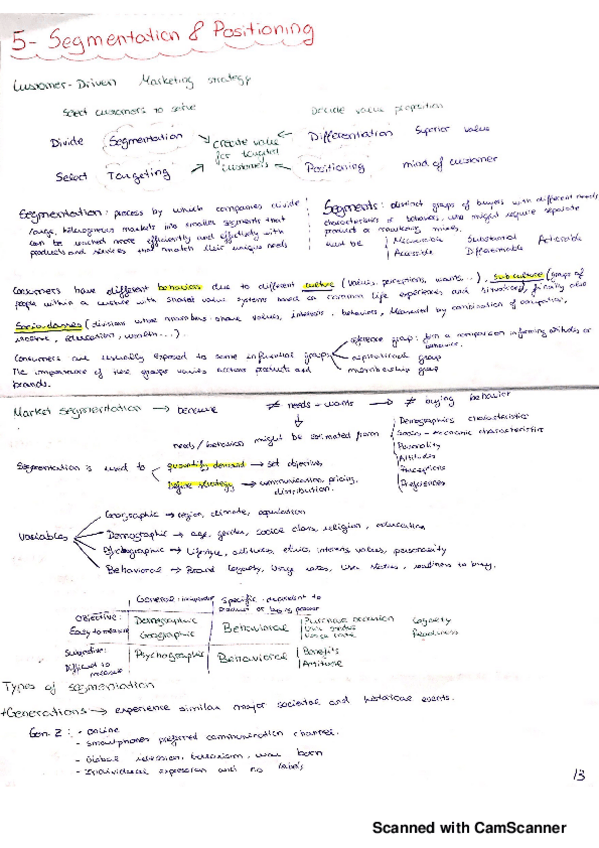 5- Segmentation & Positioning
Customer-Driven Marketing strategy
Select customers to serve Decide value proposition
Divide Segmentation create value for targeted customers Differentiation Superior value
Select Targeting Positioning mind of customer
Segmentation: process by which companies divide
large, heterogeneous markets into smaller segments that
can be reached more efficiently and effectively with
products and services that match their unique needs
Segments: distinct groups of buyers with different needs
characteristics or behaviors, who might require separate
product or marketing mixes.
must be Measurable Substantial Actionable
Accessible Differentiable
Consumers have different behaviors due to different culture (values, perceptions, wants...), subculture (groups of
people within a culture with shared value systems based on common life experiences and situations), finally also
Social classes (divisions whose members share values, interests, behaviors, measured by combination of occupation,
income, education, wealth...).
Consumers are usually exposed to some influential groups
The importance of these groups varies across products and
brands.
reference group: form a comparison in forming attitudes or
behavior.
aspirational group
membership group
Market segmentation → because ≠ needs - wants → ≠ buying behavior
needs/behaviors might be estimated from
Demographics characteristics
Socio-economic characteristics
Personality
Attitudes
Perceptions
Preferences
Segmentation is used to quantify demand → set objectives
Define strategy → communication, pricing,
distribution.
Variables
Geographic → region, climate, population
Demographic → age, gender, social class, religion, education
Psychographic → lifestyle, attitudes, interests values, personality
Behavioral → Brand loyalty, usage rates, user status, readiness to buy.
General: independent Specific: dependent to
product or process
Objective: Easy to measure Demographic Geographic Behavioral Purchase occasion Loyalty
Readiness
Subjective: Difficult to measure Psychographic Behavioral Benefits
Attitude
Types of segmentation
+Generations → experience similar major societal and historical events.
Gen Z: - online
- Smartphones preferred communication channel.
- Global recession, terrorism, war
- Individual expression and no labels
13
Scanned with CamScanner